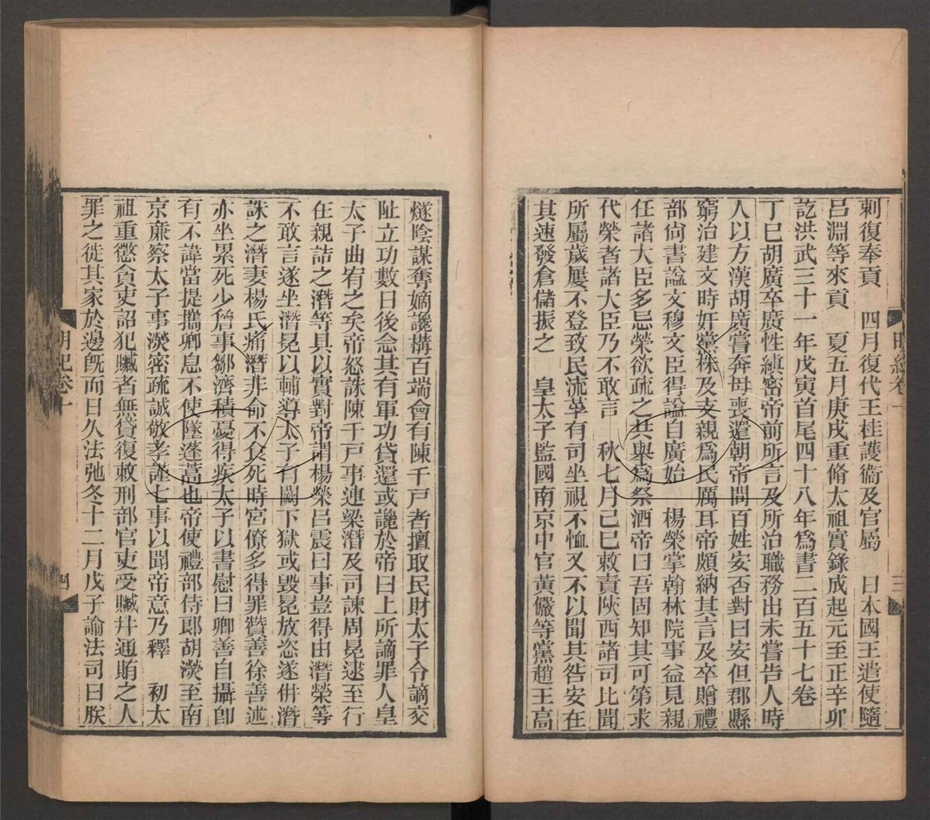 剌復奉貢　四月復代王桂護衞及官屬　日本國王遣使隨
呂淵等來貢　夏五月庚戌重脩太祖實錄成起元至正辛卯
訖洪武三十一年戊寅首尾四十八年爲書二百五十七卷
丁巳胡廣卒廣性縝密帝前所言及所治職務出未嘗告人時
人以方漢胡廣嘗奔母喪還朝帝問百姓安否對曰安但郡縣
窮治建文時奸黨株及支親爲民厲耳帝頗納其言及卒贈禮
部尙書諡文穆文臣得諡自廣始　楊榮掌翰林院事益見親
任諸大臣多忌榮欲疏之共舉爲祭酒帝曰吾固知其可第求
代榮者諸大臣乃不敢言　秋七月己巳敕責陝西諸司比聞
所屬歲屢不登致民流莩有司坐視不恤又不以聞其咎安在
其速發倉儲振之　皇太子監國南京中官黃儼等黨趙王高
三
燧陰謀奪嫡讒構百端會有陳千戶者擅取民財太子令謫交
阯立功數日後念其有軍功貸還或讒於帝曰上所謫罪人皇
太子曲宥之矣帝怒誅陳千戶事連梁潛及司諫周冕逮至行
在親詰之潛等具以實對帝謂楊榮呂震曰事豈得由潛榮等
不敢言遂坐潛冕以輔導太子有闕下獄或毀冕放恣遂併潛
誅之潛妻楊氏痛潛非命不食死時宮僚多得罪贊善徐善述
亦坐累死少詹事鄒濟積憂得疾太子以書慰曰卿善自攝卽
有不諱當提攜卿息不使墜蓬蒿也帝使禮部侍郞胡濙至南
京廉察太子事濙密疏誠敬孝謹七事以聞帝意乃釋　初太
祖重懲貪吏詔犯贓者無貸復敕刑部官吏受贓幷通賄之人
罪之徙其家於邊旣而日久法弛冬十二月戊子諭法司曰朕
明紀卷十
四